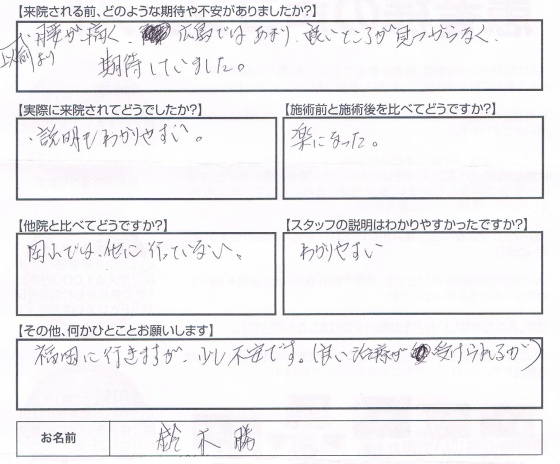 【来院される前、どのような期待や不安がありましたか?】
以前より
・腰が痛く、広島ではあまり、良いところが見つからなく、
期待していました。
【実際に来院されてどうでしたか?】
・説明もわかりやすい。
【施術前と施術後を比べてどうですか?】
楽になった。
【他院と比べてどうですか?】
岡山では、他に行っていない。
【スタッフの説明はわかりやすかったですか?】
わかりやすい
【その他、何かひとことお願いします】
福岡に行きますが、少し不安です。(良い治療が受けられるか)
お名前
鈴木勝